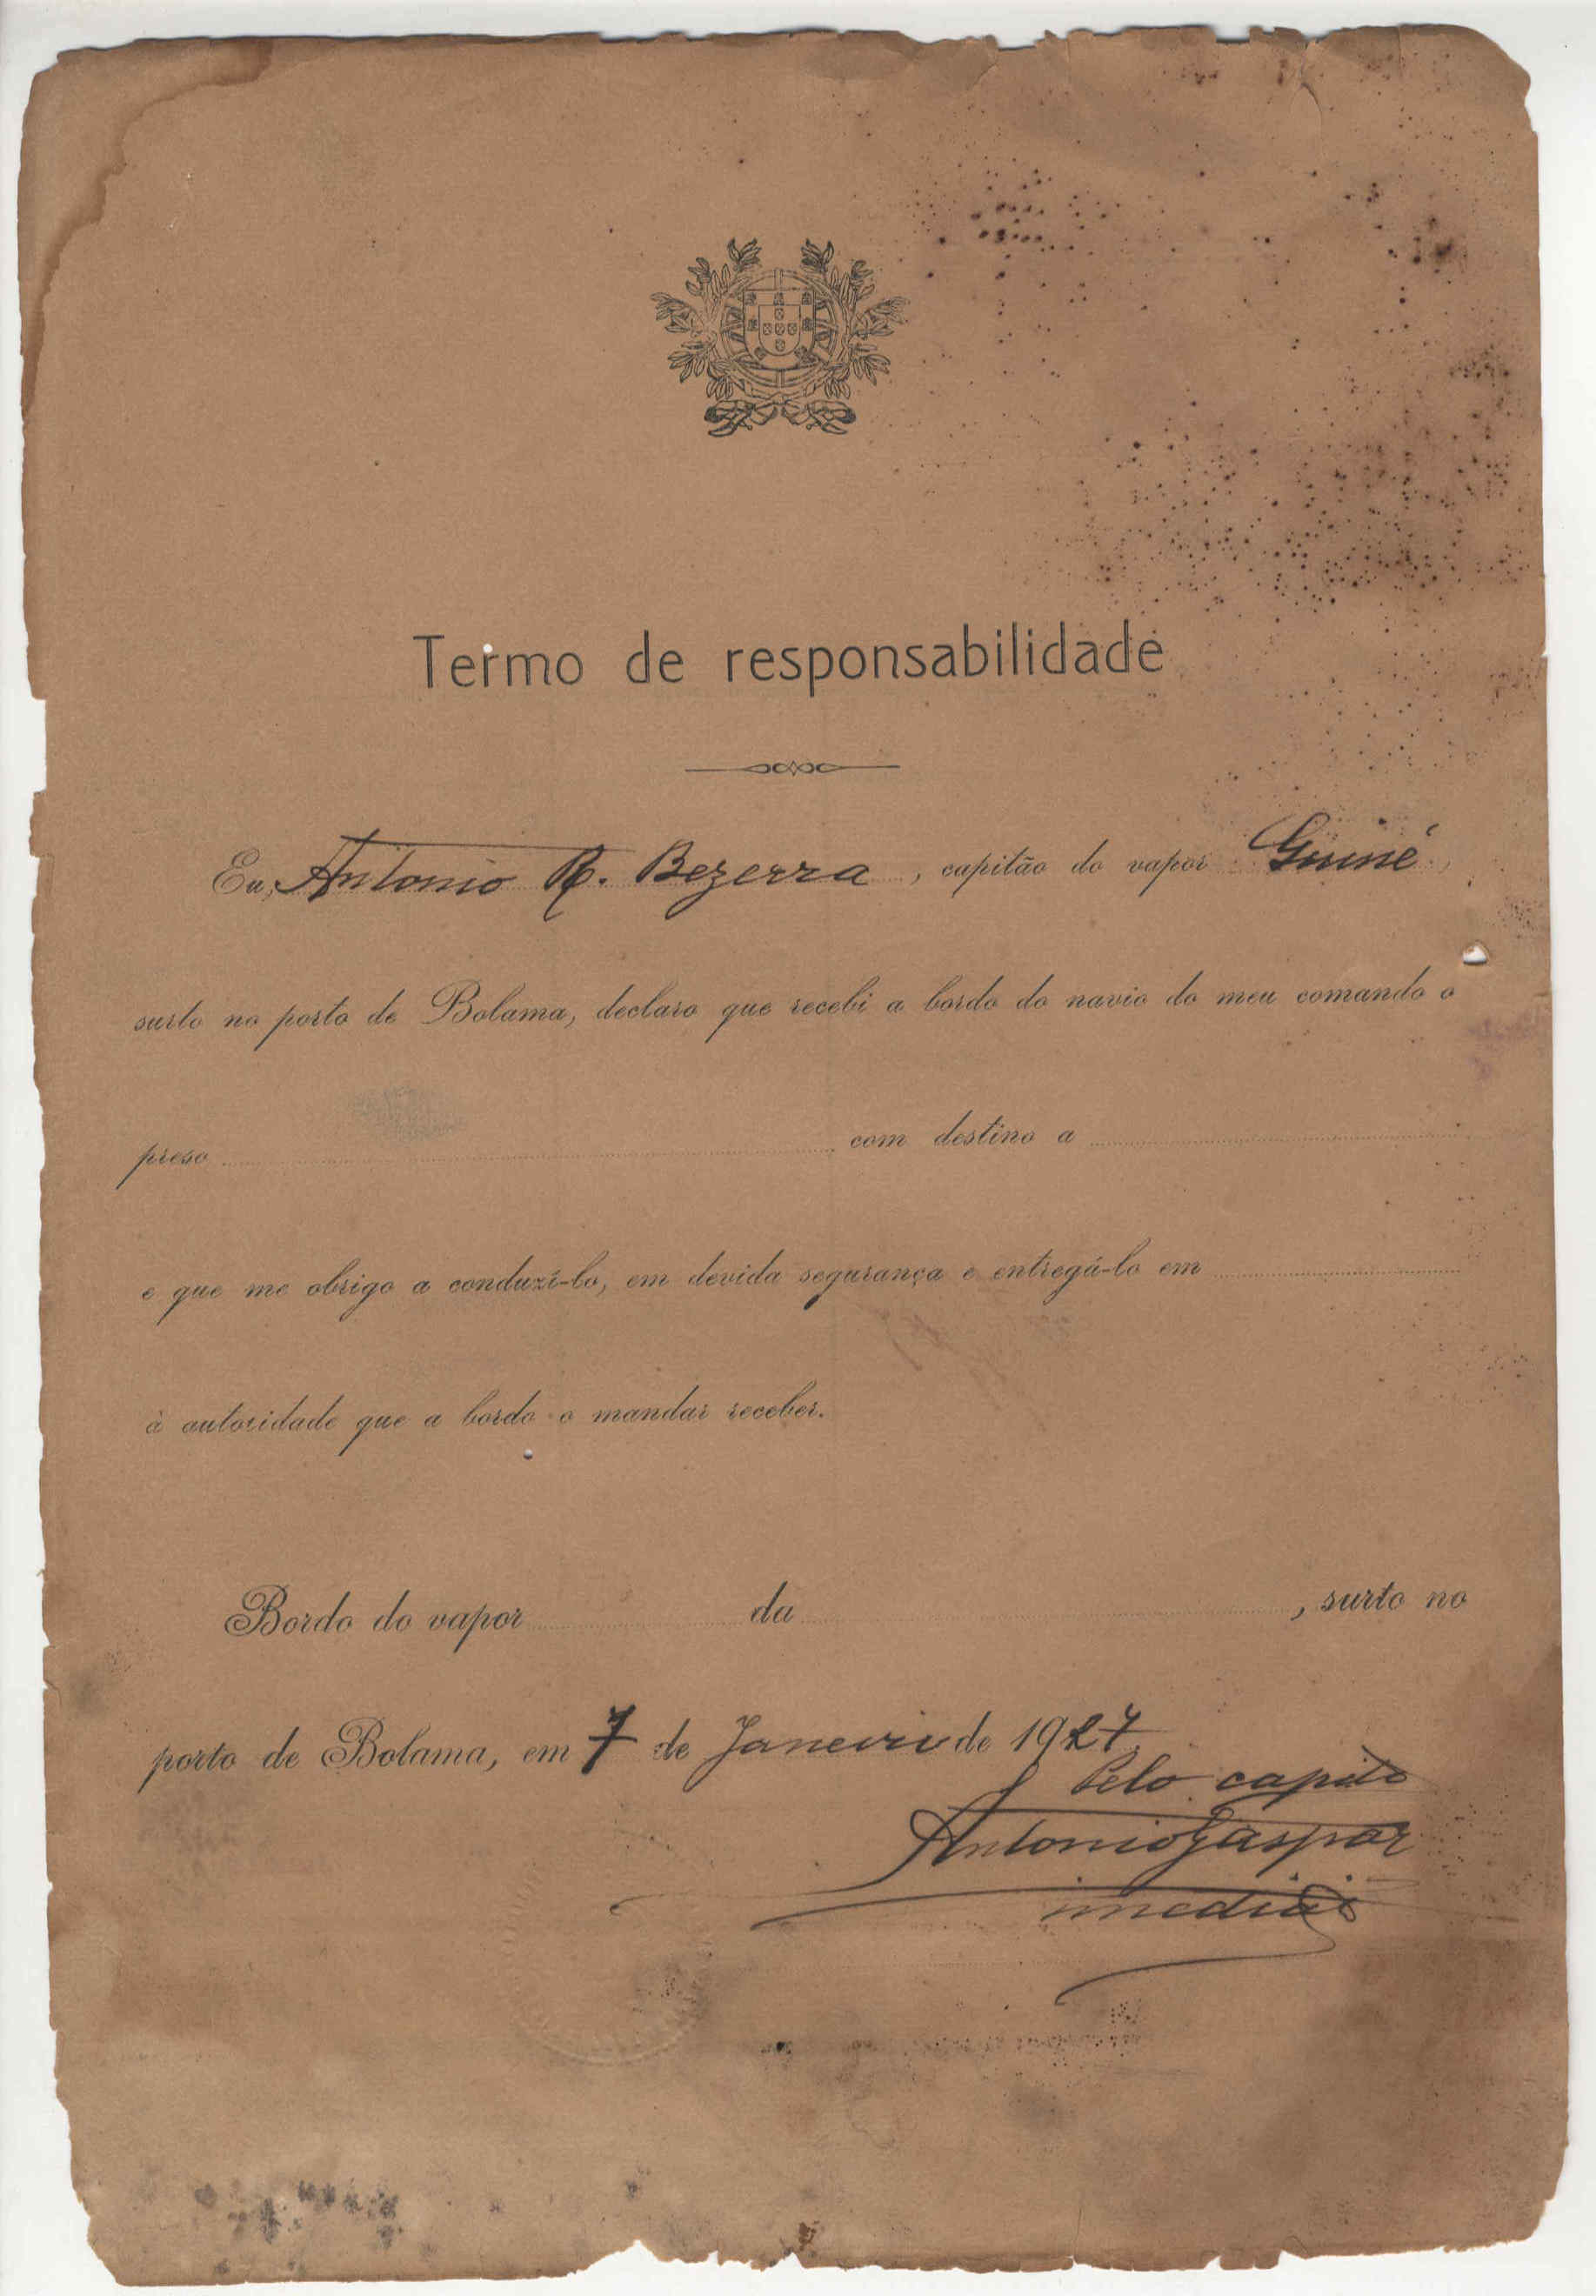 Termo de responsabilidade
Eu, Antonio R. Bezerra, capitão do vapor Guiné,
surto no porto de Bolama, declaro que recebi a bordo do navio do meu comando o
preso com destino a
e que me obrigo a conduzí-lo, em devida segurança e entregá-lo em
à autoridade que a bordo o mandar receber.
Bordo do vapor da , surto no
porto de Bolama, em 7 de Janeiro de 1927.
Pelo capitão
Antonio Gaspar